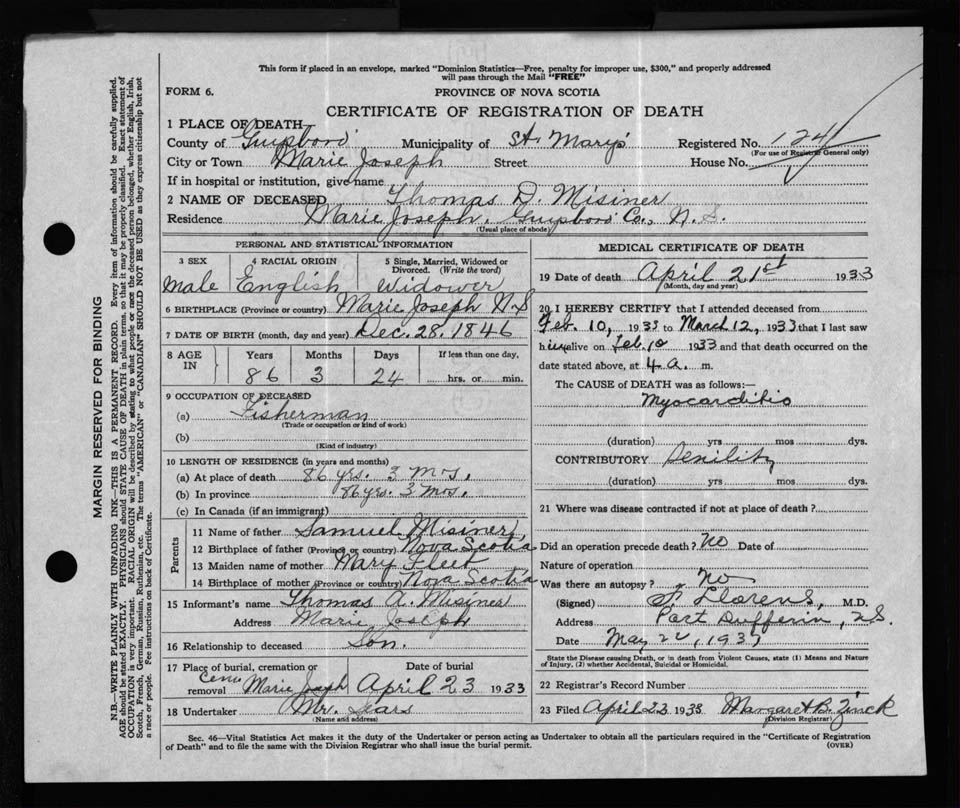 This form if placed in an envelope, marked "Dominion Statistics—Free, penalty for improper use, $300," and properly addressed
will pass through the Mail "FREE"
FORM 6.
PROVINCE OF NOVA SCOTIA
CERTIFICATE OF REGISTRATION OF DEATH
1 PLACE OF DEATH
County of Guysboro Municipality of St. Mary's Registered No. 124
(For use of Registrar General only)
City or Town Marie Joseph Street House No.
If in hospital or institution, give name
2 NAME OF DECEASED Thomas D. Misiner
Residence Marie Joseph, Guysboro Co., N.S.
(Usual place of abode)
PERSONAL AND STATISTICAL INFORMATION
3 SEX 4 RACIAL ORIGIN 5 Single, Married, Widowed or
Divorced. (Write the word)
Male English Widower
6 BIRTHPLACE (Province or country) Marie Joseph N.S
7 DATE OF BIRTH (month, day and year) Dec. 28. 1846
8 AGE IN Years Months Days If less than one day,
86 3 24 hrs. or min.
9 OCCUPATION OF DECEASED
(a) Fisherman
(Trade or occupation or kind of work)
(b)
(Kind of industry)
10 LENGTH OF RESIDENCE (in years and months)
(a) At place of death 86 yrs. 3 mos.
(b) In province 86 yrs. 3 mos.
(c) In Canada (if an immigrant)
Parents
11 Name of father Samuel Misiner,
12 Birthplace of father (Province or country) Nova Scotia
13 Maiden name of mother Mary Fleet
14 Birthplace of mother (Province or country) Nova Scotia
15 Informant's name Thomas A. Misiner
Address Marie Joseph
16 Relationship to deceased Son.
17 Place of burial, cremation or Date of burial
removal Cem. Marie Joseph April 23 1933
18 Undertaker Mr. Sears
(Name and address)
MEDICAL CERTIFICATE OF DEATH
19 Date of death April 21st 1933
(Month, day and year)
20 I HEREBY CERTIFY that I attended deceased from
Feb. 10, 1933 to March 12, 1933 that I last saw
him alive on Feb. 10 1933 and that death occurred on the
date stated above, at 4 a. m.
The CAUSE of DEATH was as follows:—
Myocarditis
(duration) yrs mos dys.
CONTRIBUTORY Senility
(duration) yrs mos dys.
21 Where was disease contracted if not at place of death?
Did an operation precede death? No Date of
Nature of operation
Was there an autopsy? No
(Signed) Llorens, M.D.
Address Port Dufferin, N.S.
Date May 22, 1933
State the Disease causing Death, or in death from Violent Causes, state (1) Means and Nature
of Injury, (2) whether Accidental, Suicidal or Homicidal.
22 Registrar's Record Number
23 Filed April 23 1933 Margaret B. Zinck
(Division Registrar)
Sec. 46—Vital Statistics Act makes it the duty of the Undertaker or person acting as Undertaker to obtain all the particulars required in the "Certificate of Registration
of Death" and to file the same with the Division Registrar who shall issue the burial permit.
(OVER)
MARGIN RESERVED FOR BINDING
N.B.—WRITE PLAINLY WITH UNFADING INK—THIS IS A PERMANENT RECORD. Every item of information should be carefully supplied.
AGE should be stated EXACTLY. PHYSICIANS should STATE CAUSE OF DEATH in plain terms, so that it may be properly classified. Exact statement of
OCCUPATION is very important. RACIAL ORIGIN will be described by stating to what people or race the deceased person belonged, whether English, Irish,
Scotch, French, German, Russian, Ruthenian, etc. The terms "AMERICAN" or "CANADIAN" SHOULD NOT BE USED as they express citizenship but not
a race or people. Fee instructions on back of Certificate.